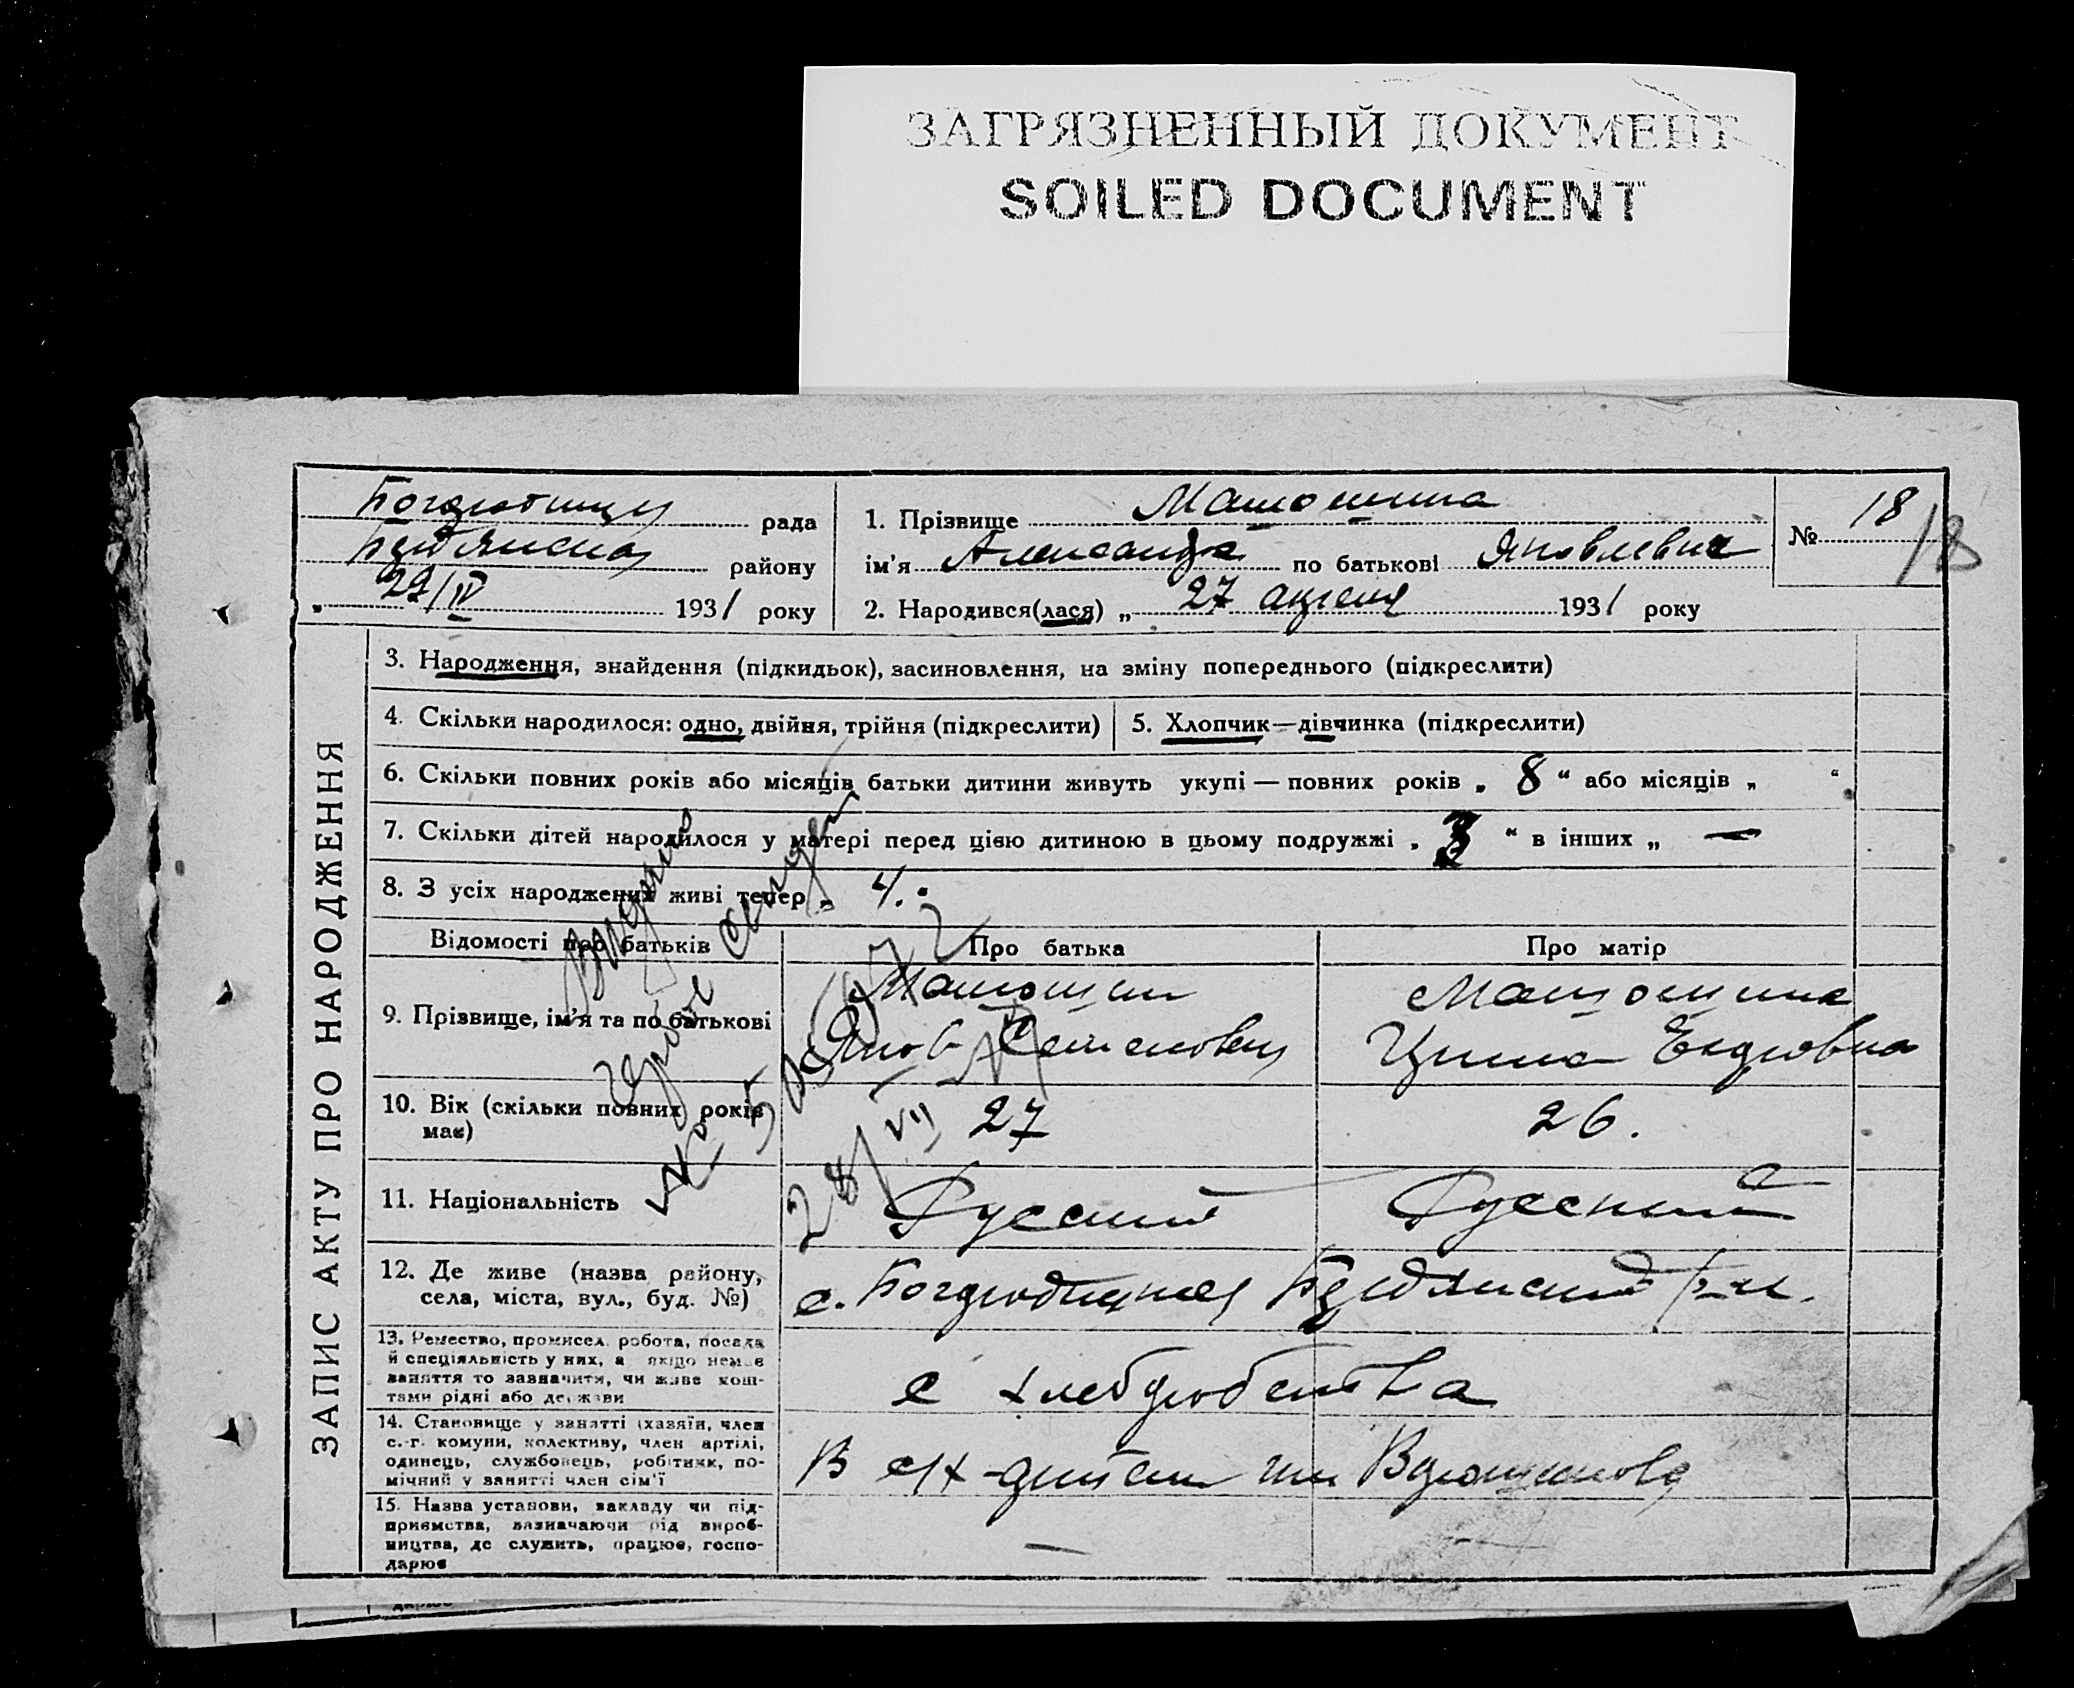 ЗАГРЯЗНЕННЫЙ ДОКУМЕНТ
SOILED DOCUMENT
рада
району
29/IV 1931 року
1. Прізвище
ім'я Александра по батькові Яковлевна
2. Народився(лася) „ 27 апреля 1931 року
№ 18
18
ЗАПИС АКТУ ПРО НАРОДЖЕННЯ
3. Народження, знайдення (підкидьок), засиновлення, на зміну попереднього (підкреслити)
4. Скільки народилося: одно, двійня, трійня (підкреслити)
5. Хлопчик—дівчинка (підкреслити)
6. Скільки повних років або місяців батьки дитини живуть укупі — повних років „ 8 “ або місяців „ “
7. Скільки дітей народилося у матері перед цією дитиною в цьому подружжі „ 3 “ в інших „ —
8. З усіх народжених живі тепер „ 4.
Відомості про батьків
Про батька
Про матір
9. Прізвище, ім'я та по батькові
Яков Семенович
10. Вік (скільки повних років
має)
27
26.
11. Національність
Русский
Русская
12. Де живе (назва району,
села, міста, вул., буд. №)
с. р-н.
13. Ремество, промисел, робота, посада
й спеціяльність у них, а якщо немає
заняття то зазначити, чи живе кош-
тами рідні або держави
с хлебдробства
14. Становище у занятті (хазяїн, член
с.-г. комуни, колективу, член артілі,
одинець, службовець, робітник, по-
мічний у занятті член сім'ї
В с/х им Ворошилова
15. Назва установи, закладу чи під-
приємства, зазначаючи рід вироб-
ництва, де служить, працює, госпо-
дарює
—
28/VII